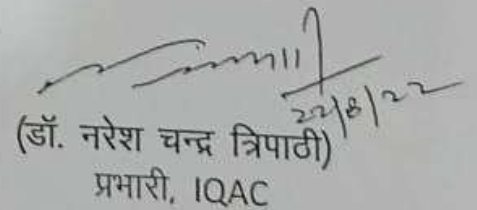 22/8/22
(डॉ. नरेश चन्द्र त्रिपाठी)
प्रभारी, IQAC